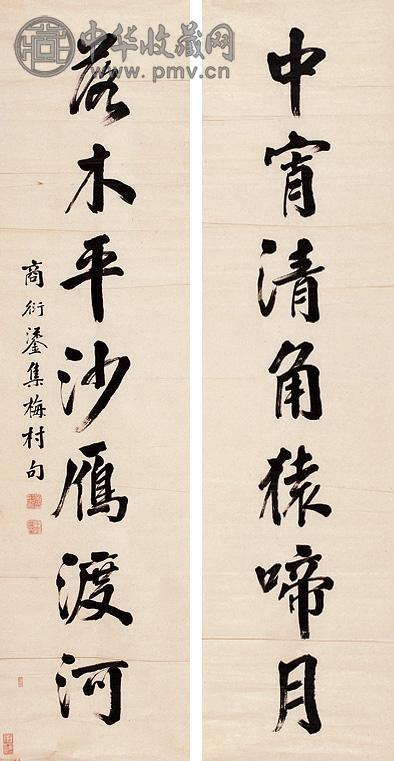 中宵清角猿啼月
落木平沙雁渡河
商衍鎏集梅村句
中华收藏网
www.pmv.cn